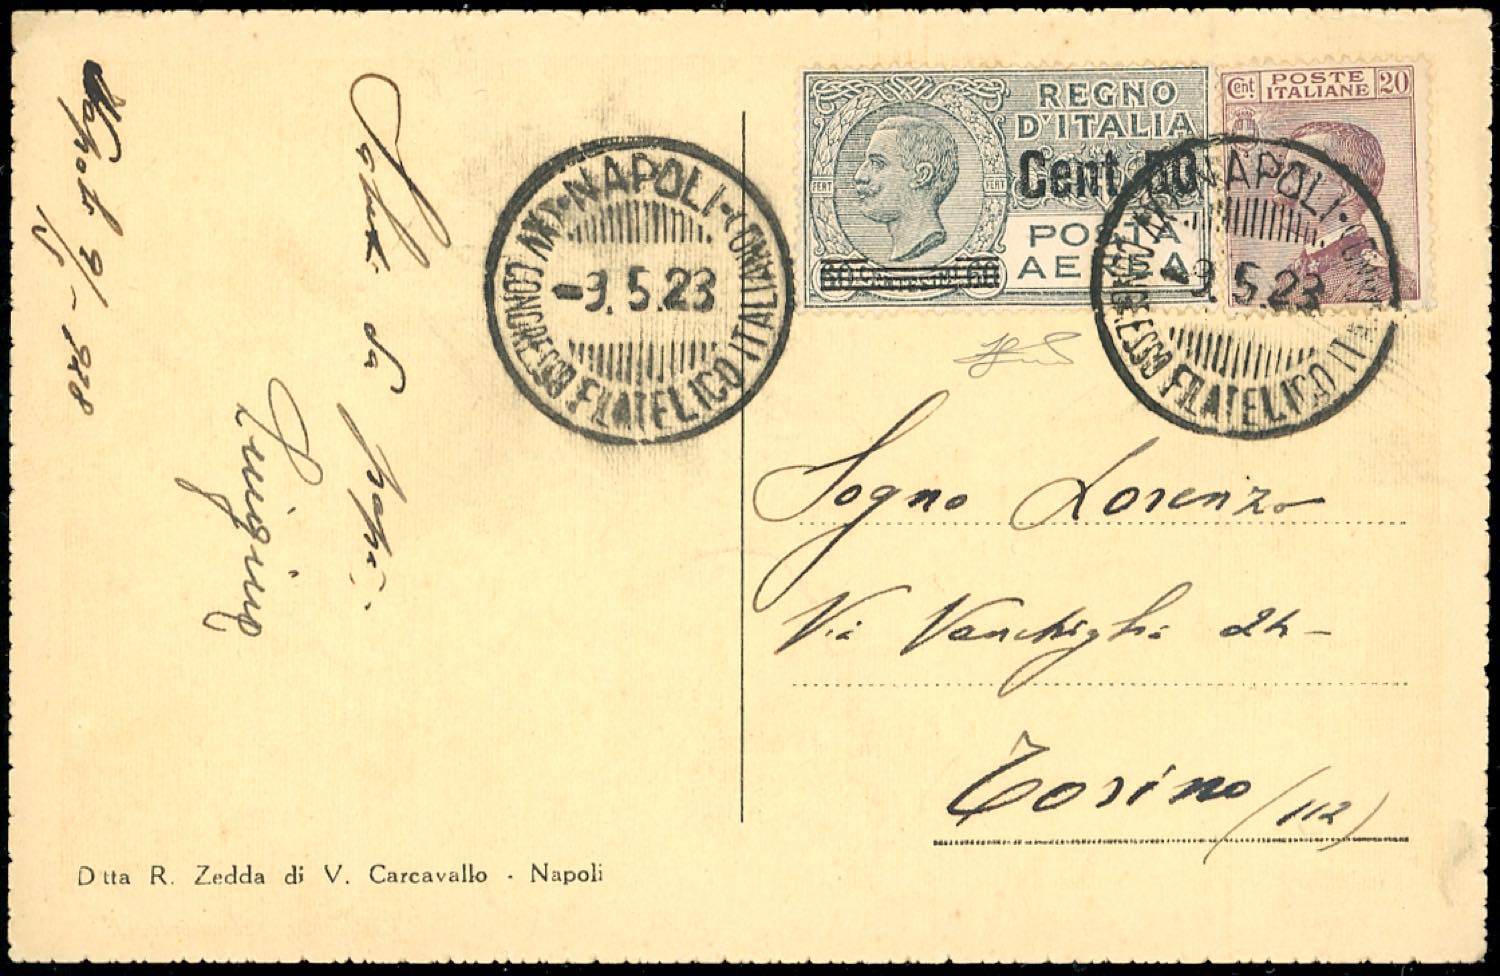 Napoli 9/5-1928
Saluti da Napoli.
Luigino
Ditta R. Zedda di V. Carcavallo - Napoli
·NAPOLI· (XV CONGRESSO FILATELICO ITALIANO)
-9.5.23
REGNO
D'ITALIA
Cent. 50
POSTA
AEREA
60 CENTESIMI 60
FERT FERT
Cent. POSTE ITALIANE 20
·NAPOLI· CONGRESSO FILATELICO ITALIANO
-9.5.23
Sogno Lorenzo
Via Vanchiglia 24-
Torino (112)